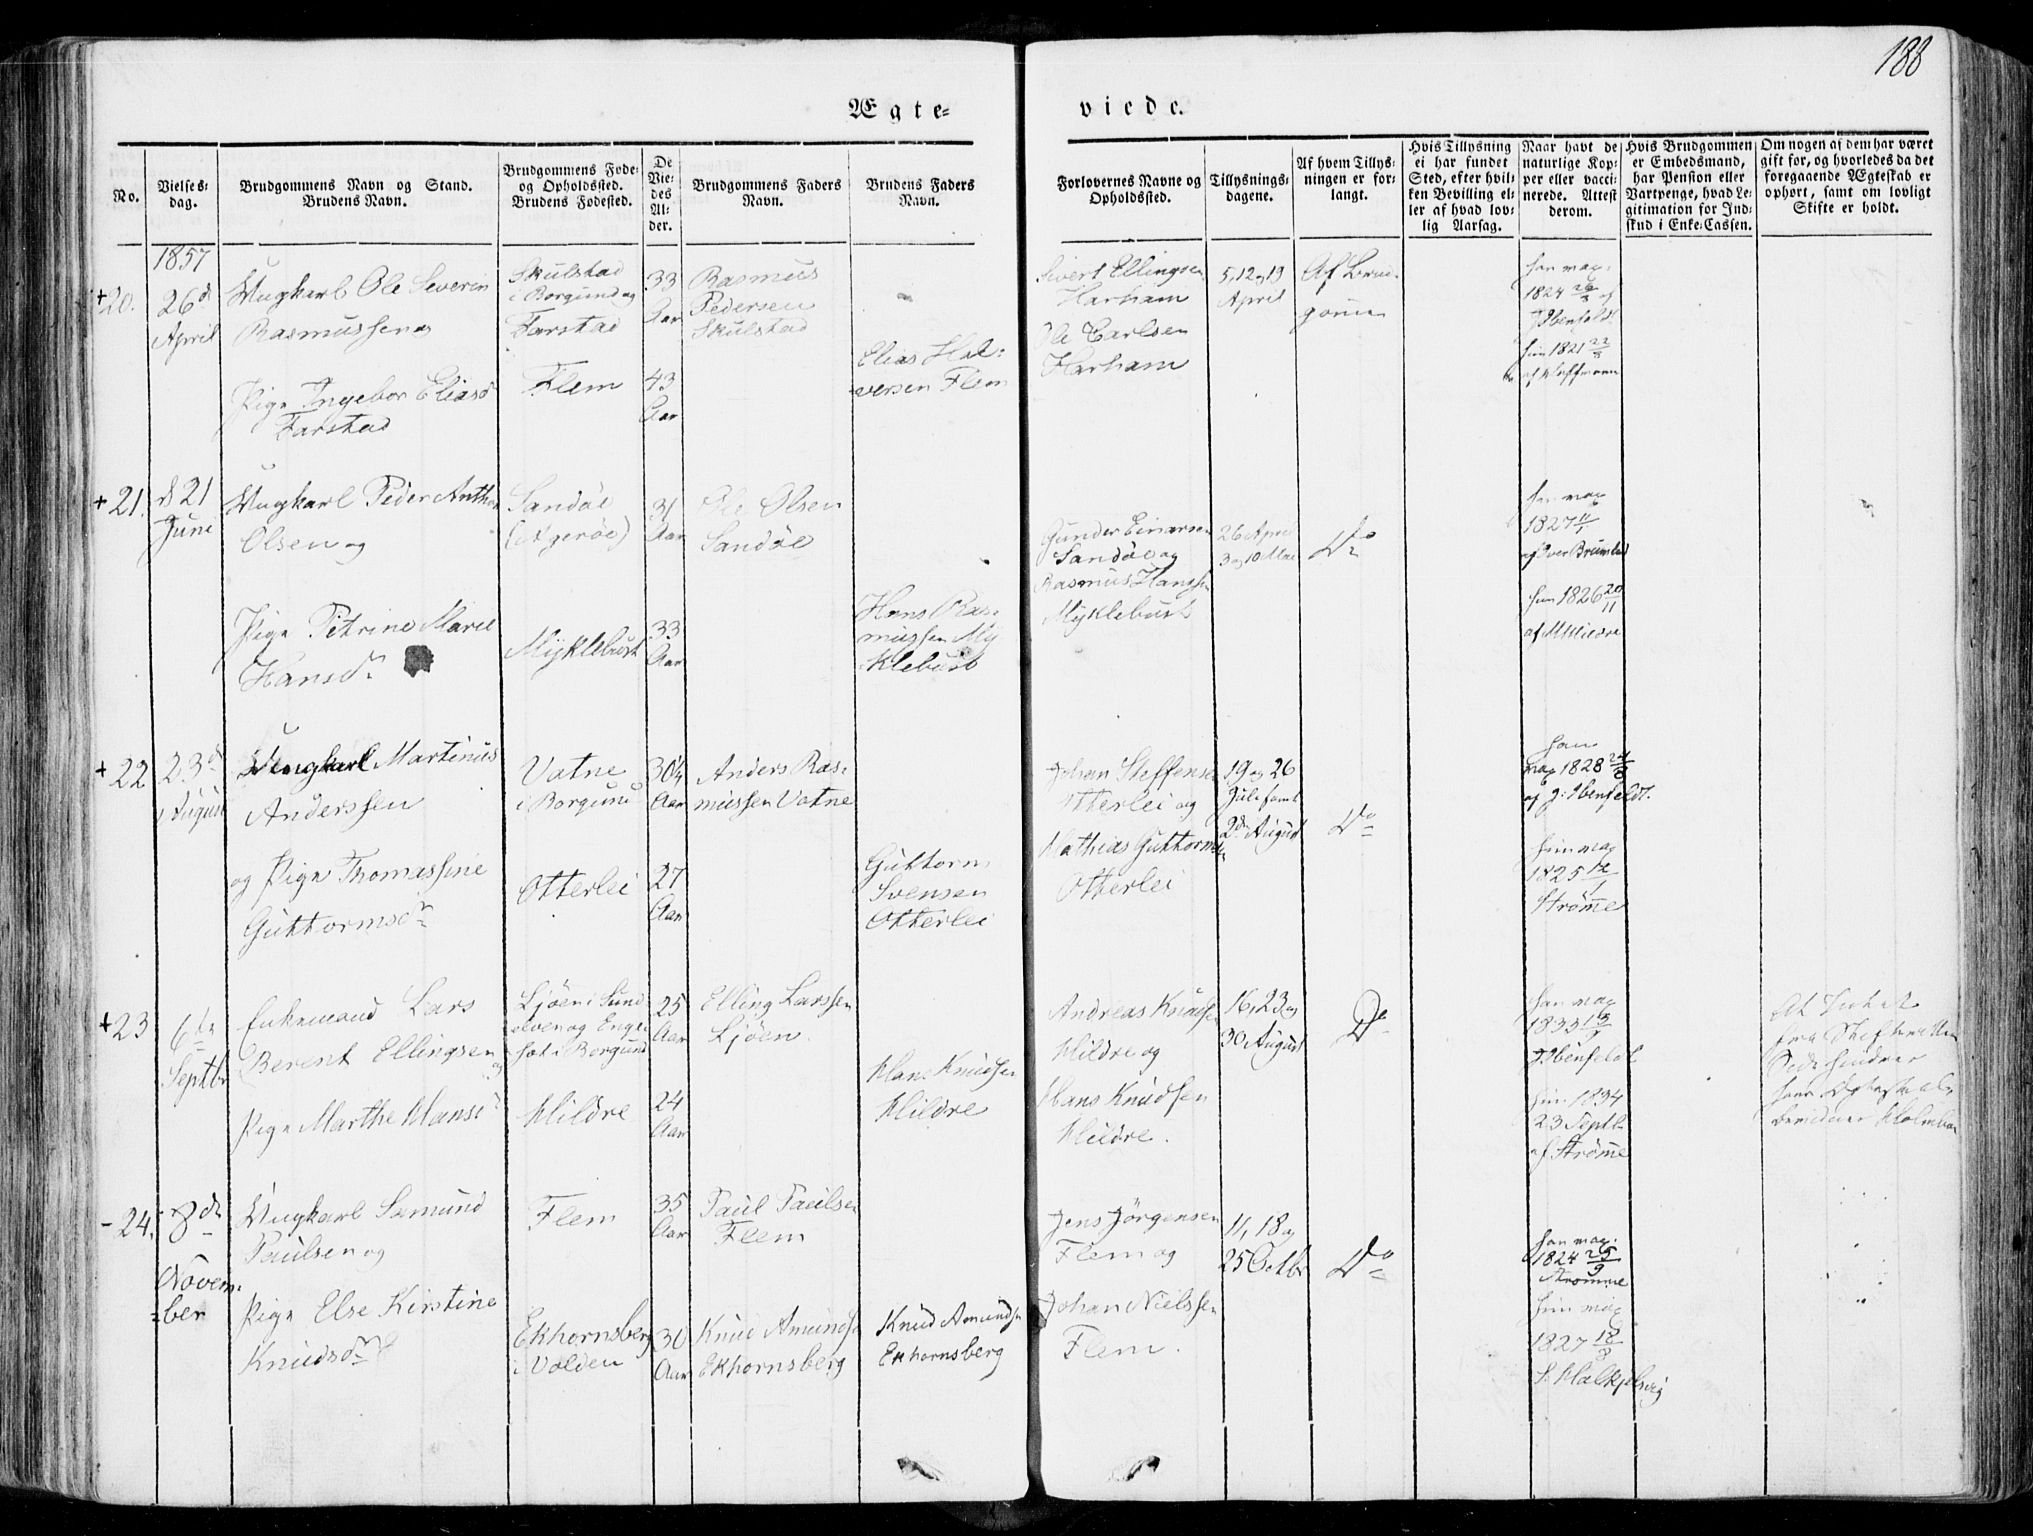 188
Ægte-
viede.
No.
Vielses-
dag.
Brudgommens Navn og Stand.
Brudens Navn.
Brudgommens Føde-
og Opholdssted.
Brudens Fødested.
De
Vie-
des
Al-
der.
Brudgommens Faders
Navn.
Brudens Faders
Navn.
Forlovernes Navne og
Opholdssted.
Tillysnings-
dagene.
Af hvem Tillys-
ningen er for-
langt.
Hvis Tillysning
ei har fundet
Sted, efter hvil-
ken Bevilling el-
ler af hvad lov-
lig Aarsag.
Naar havt de
naturlige Kop-
per eller vacci-
nerede. Attest
derom.
Hvis Brudgommen
er Embedsmand,
har Pension eller
Vartpenge, hvad Le-
gitimation for Ind-
skud i Enke-Cassen.
Om nogen af dem har været
gift før, og hvorledes da det
foregaaende Ægteskab er
ophørt, samt om lovligt
Skifte er holdt.
1857
+20.
26d
April
Ungkarl Ole Severin
Rasmussen og
Pige Ingebor Eliasd
Farstad
Skulstad
i Borgund og
Farstad
Flem
33
Aar
43
Aar
Rasmus
Pedersen
Skulstad
Elias Hal-
versen Flem
Sivert Ellingsen
Harham
Ole Carlsen
Harham
5, 12 og 19
April
Af Brud-
gommen
han vax.
1824 26/3 af
J Ibenfeldt
hun 1821 22/5
+21.
d 21
Juni
Ungkarl Peder Anthon
Olsen og
Pige Petrine Marie
Hansdr
Sandöe
(Ageröe)
Myklebust
31
Aar
33
Aar
Ole Olsen
Sandöe
Hans Ras-
mussen My
klebust
Gunder Einarsen
Sandöe og
Rasmus Hanssen
Myklebust
26 April
3 og 10 Mai
Do
han vax
1827 11/1
af Iver Brunstad
hun 1826 20/11
af M Hildre
+22
23d
August
Ungkarl Martinus
Anderssen
og Pige Thomassine
Guttormsdr
Vatne
i Borgund
Otterlei
30 1/4
Aar
27
Aar
Anders Ras-
mussen Vatne
Guttorm
Svensen
Otterlei
Johan Steffensen
Otterlei og
Mathias Guttorms
Otterlei
19 og 26
Juli samt
2den August
Do
han
vax 1828 24/8
af J: Ibenfeldt.
hun vax
1825 12/1
Strømme
+23
6te
Septbr
Enkemand Lars
Berent Ellingsen
og
Pige Marthe Hansdr
Ljöen i Sund
elven og Enge
sæt i Borgund
Hildre
25
Aar
24
Aar
Elling Larssen
Ljöen.
Hans Knudsen
Hildre
Andreas Knudsen
Hildre og
Hans Knudsen
Hildre.
16, 23 og
30 August
Do
han vax
1833
J Ibenfeldt
hun 1834
23 Septb.
af Strømme
At
fra Skifteretten
-24.
8de
Novem-
ber
Ungkarl Samund
Paulsen og
Pige Else Kirstine
Knudsdr
Flem
Ekhornsberg
i Volden
35
Aar
30
Aar
Paul Paulsen
Flem
Knud Amunds
Ekhornsberg
Knud Amundsen
Ekhornsberg
Jens Jörgensen
Flem og
Johan Nielssen
Flem.
11, 18 og
25 Octbr
Do
han vax.
1824 25/9
Strømme
hun vax
1827 18/8